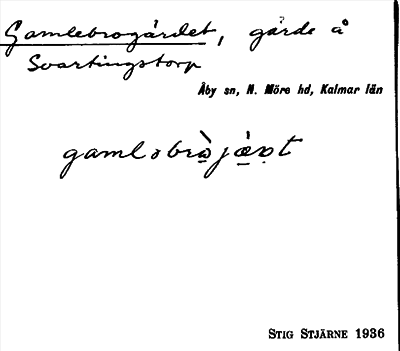 Gamlebrogärdet, gärde å
Svartingstorp
Åby sn, N. Möre hd, Kalmar län
STIG STJÄRNE 1936